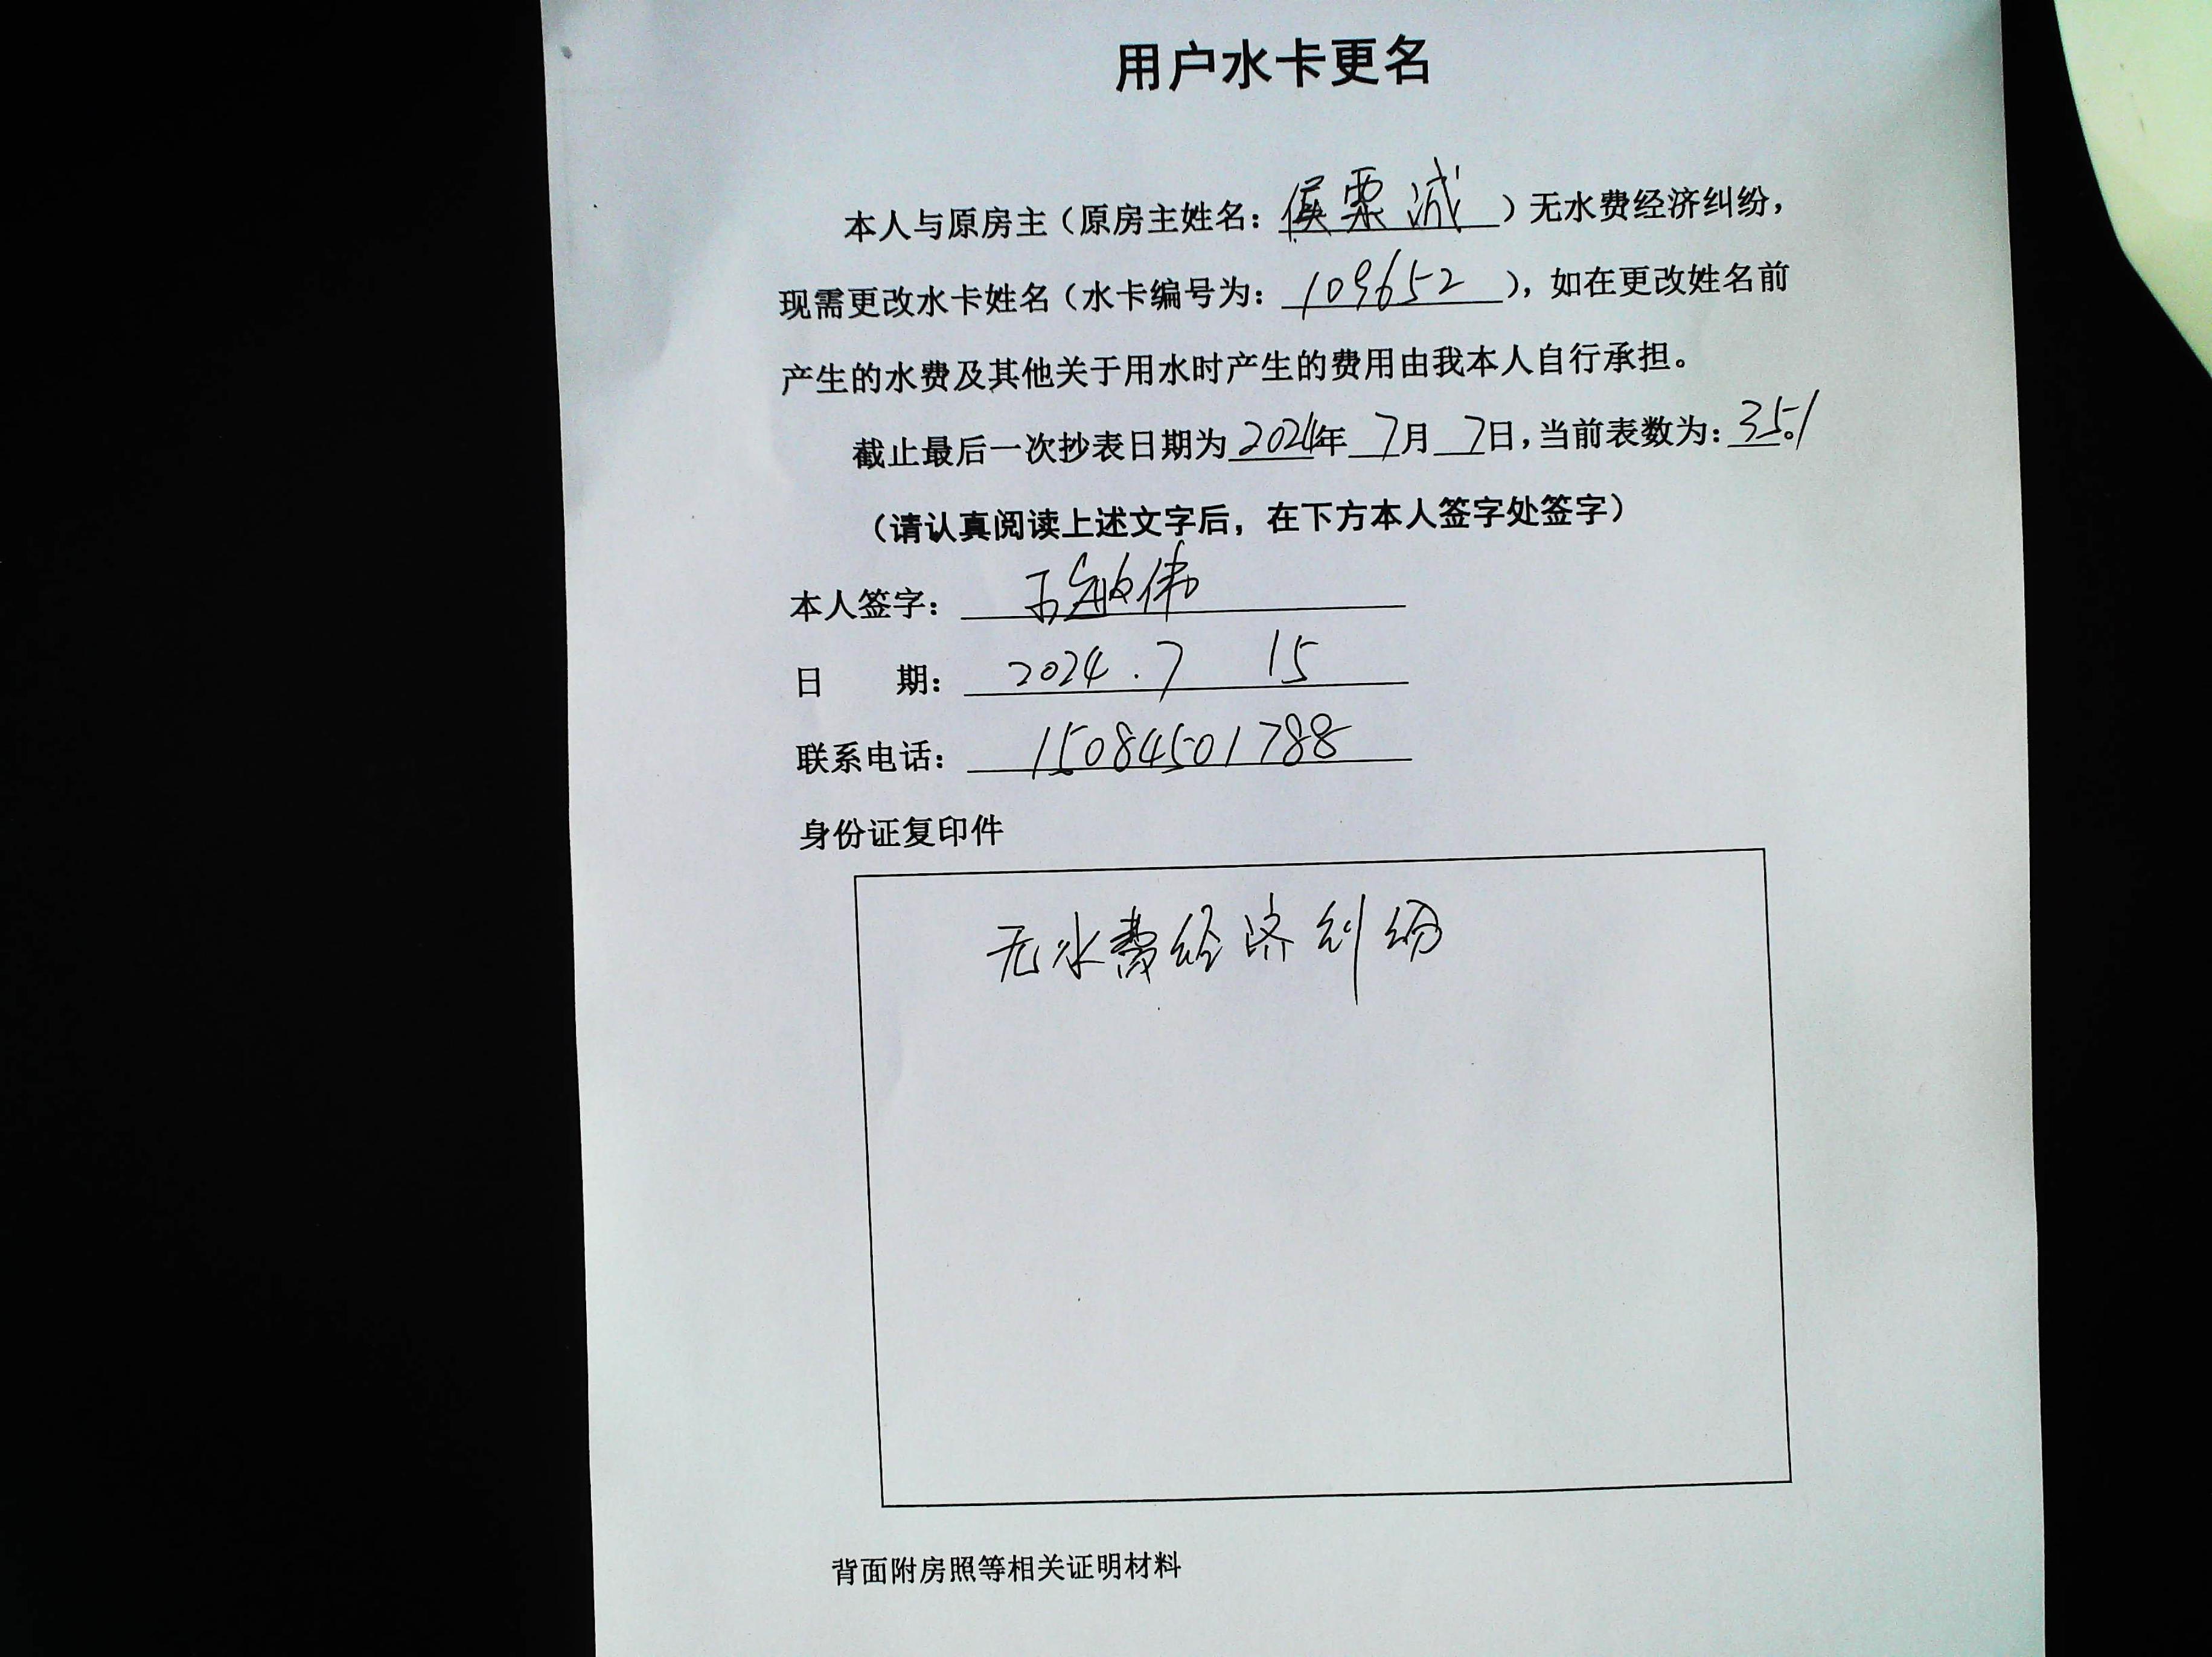 用户水卡更名
本人与原房主（原房主姓名：侯票诚）无水费经济纠纷，
现需更改水卡姓名（水卡编号为：109652），如在更改姓名前
产生的水费及其他关于用水时产生的费用由我本人自行承担。
截止最后一次抄表日期为2024年7月7日，当前表数为：35.1
（请认真阅读上述文字后，在下方本人签字处签字）
本人签字：敏伟
日 期：2024.7 15
联系电话：15084501788
身份证复印件
无水费经济纠纷
背面附房照等相关证明材料